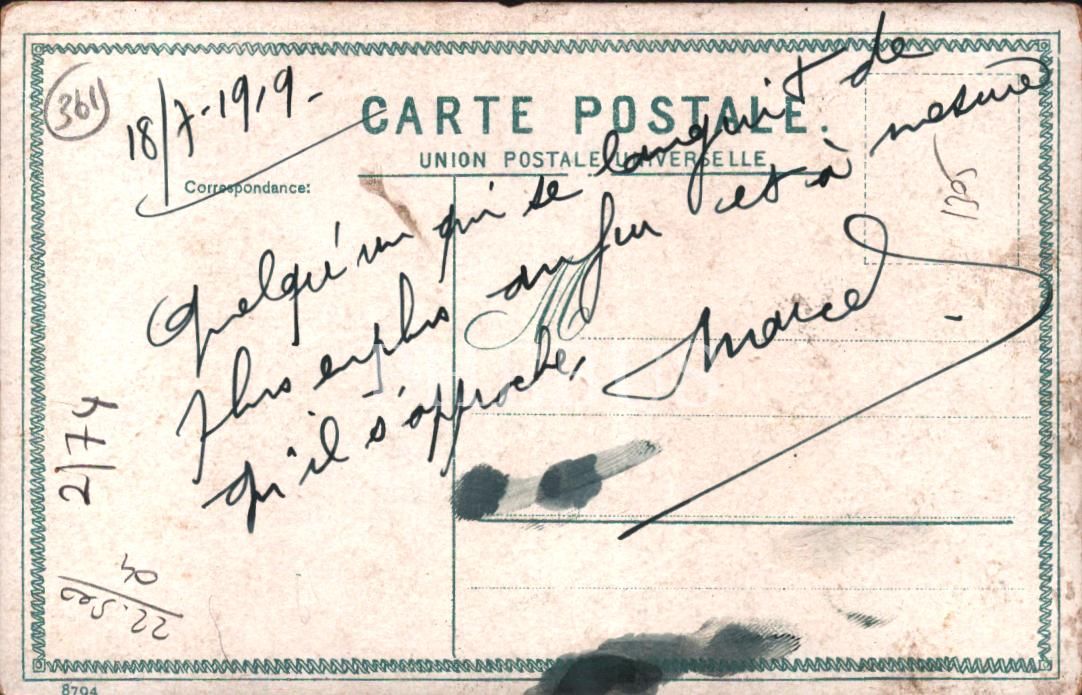 361
18/7-1919-
CARTE POSTALE.
UNION POSTALE UNIVERSELLE
Correspondance:
Quelqu'un qui se languit de
plus en plus au fur et à mesure
qu'il s'approche,
Marcel
M
1205
2/74
22.500
04
8794